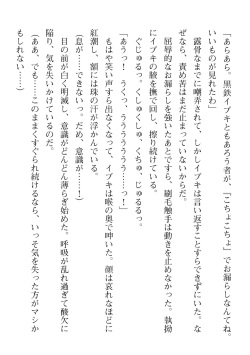 「あらあら。黒鉄イブキともあろう者が、「こちょこちょ」でお漏らしなんてね。
いいものが見れたわ」
露骨なまでに嘲弄されて、しかしイブキは言い返すことすらできずにいた。な
ぜなら、責め苦はまだ止まっていないからだ。
屈辱的なお漏らしを強いたあとですら、刷毛触手は動きを止めなかった。執拗
にイブキの腋を撫で回し、擦り続けている。
ぐじゅるるっ。くしゅくしゅ、くちゅ、じゅるるっ。
「あうっ！　うくっ、うううううう……っ！」
もはや笑い声すら出なくなって、イブキは喉の奥で呻いた。顔は哀れなほどに
紅潮し、額には珠の汗が浮かんでいる。
（息が……できないっ。だめ、意識が……）
目の前が白く明滅し、意識がどんどん薄らぎ始めた。呼吸が乱れ過ぎて酸欠に
陥り、気を失いかけているのだ。
（ああ、でも……このままくすぐられ続けるなら、いっそ気を失った方がマシか
もしれない……）